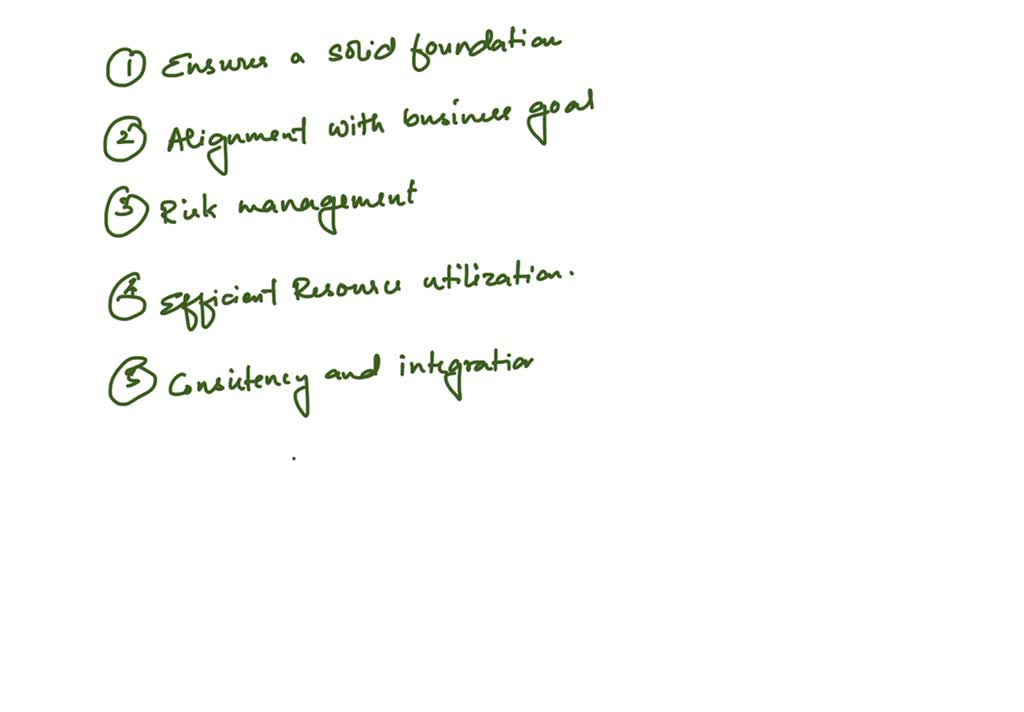 ① Ensures a solid foundation
② Alignment with business goal
③ Risk management
④ Efficient Resource utilization.
⑤ Consistency and integration